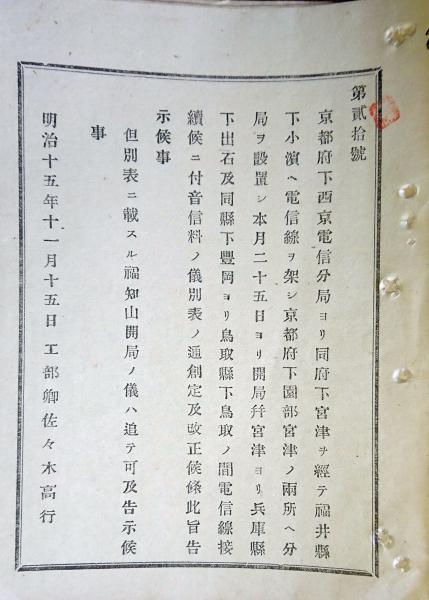 第貳拾號
京都府下西京電信分局ヨリ同府下宮津ヲ經テ福井縣
下小濵ヘ電信線ヲ架シ京都府下園部宮津ノ兩所ヘ分
局ヲ設置シ本月二十五日ヨリ開局幷宮津ヨリ兵庫縣
下出石及同縣下豐岡ヨリ鳥取縣下鳥取ノ間電信線接
續候ニ付音信料ノ儀別表ノ通創定及改正候條此旨告
示候事
但別表ニ載スル福知山開局ノ儀ハ追テ可及告示候
事
明治十五年十一月十五日 工部卿佐々木高行